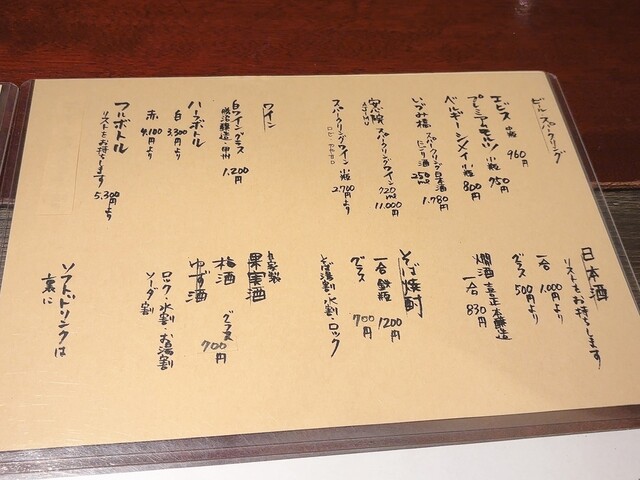 ビール スパークリング
エビス 中瓶 960円
プレミアムモルツ 小瓶 750円
ベルギーシメイ 小瓶 800円
いづみ橋 スパークリング日本酒
にごり酒 250ml 1.780円
安心院 スパークリングワイン
720ml 11.000円
スパークリングワイン 小瓶 2.700円より
ワイン
白ワイングラス 1.200円
勝沼醸造 甲州
ハーフボトル
白 3.300円より
赤 4.100円より
フルボトル
リストをお持ちします 5.300円より
日本酒
リストをお持ちします
一合 1.000円より
グラス 500円より
燗酒 喜正本醸造
一合 830円
そば焼酎
一合鉄瓶 1200円
グラス 700円
そば湯割・水割・ロック
自家製
果実酒
梅酒
ゆず酒
グラス 700円
ロック・水割・お湯割
ソーダ割
ソフトドリンクは
裏に